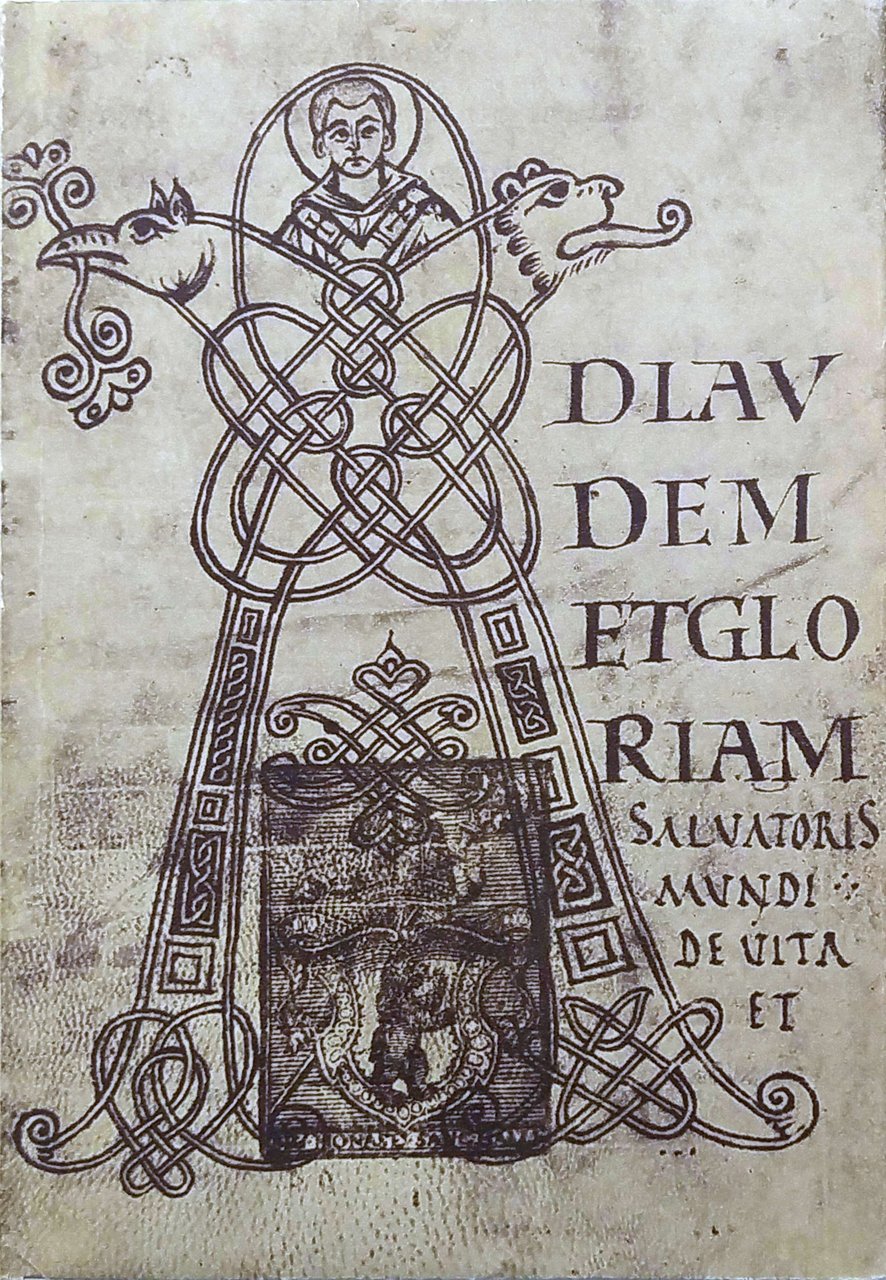 ADLAV
DEM
ETGLO
RIAM
SALUATORIS
MVNDI
DE UITA
ET